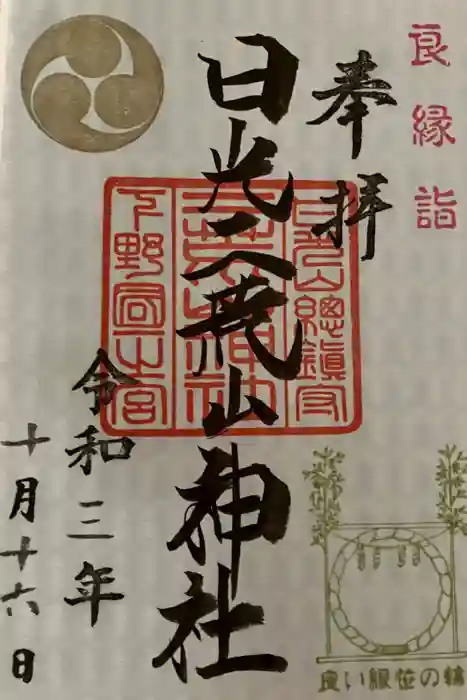 良縁詣
奉拝
日光二荒山神社
日光山總鎮守
二荒山神社
下野國一之宮
令和三年
十月十六日
良い縁笹の輪